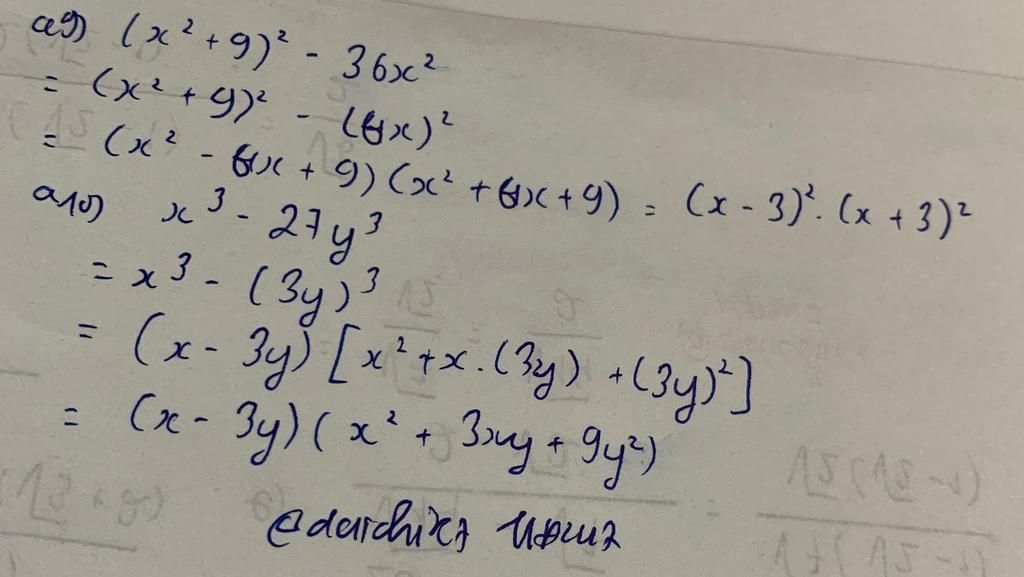 a9) (x² + 9)² - 36x²
= (x² + 9)² - (6x)²
= (x² - 6x + 9) (x² + 6x + 9) = (x - 3)² . (x + 3)²
a10) x³ - 27y³
= x³ - (3y)³
= (x - 3y) [x² + x . (3y) + (3y)²]
= (x - 3y) (x² + 3xy + 9y²)